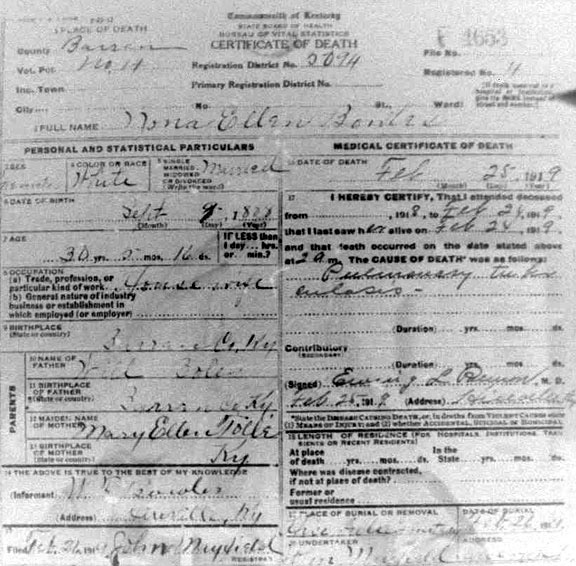 Commonwealth of Kentucky
STATE BOARD OF HEALTH
BUREAU OF VITAL STATISTICS
CERTIFICATE OF DEATH
PLACE OF DEATH
County Barren
Vot. Pct. No. 4
Inc. Town
City
Registration District No. 2094
Primary Registration District No.
No. St., Ward)
File No. 1653
Registered No. 4
2 FULL NAME Nona Ellen Bowles
PERSONAL AND STATISTICAL PARTICULARS
SEX
4 COLOR OR RACE White
5 SINGLE MARRIED WIDOWED OR DIVORCED (Write the word) Married
6 DATE OF BIRTH Sept 9 1888
(Month) (Day) (Year)
7 AGE 30 yrs. 5 mos. 16 ds.
IF LESS than 1 day... hrs. or min.?
8 OCCUPATION
(a) Trade, profession, or particular kind of work Housewife
(b) General nature of industry business or establishment in which employed (or employer)
9 BIRTHPLACE (State or country) Barren Co, Ky
PARENTS
10 NAME OF FATHER Will
11 BIRTHPLACE OF FATHER (State or country) Barren Co Ky
12 MAIDEN NAME OF MOTHER Mary Ellen
13 BIRTHPLACE OF MOTHER (State or country) Ky
14 THE ABOVE IS TRUE TO THE BEST OF MY KNOWLEDGE
(Informant)
(Address) Ky
Filed Feb. 26 191 John Mayfield
REGISTRAR
MEDICAL CERTIFICATE OF DEATH
16 DATE OF DEATH Feb 25, 1919
(Month) (Day) (Year)
17 I HEREBY CERTIFY, That I attended deceased
from 1918, to Feb 1919
that I last saw her alive on Feb 1919
and that death occurred on the date stated above
at 2 a m. The CAUSE OF DEATH* was as follows:
Pulmonary tuber
culosis
(Duration) yrs. mos. ds.
Contributory
(SECONDARY)
(Duration) yrs. mos. ds.
(Signed) M. D.
Feb. 1919 (Address)
*State the DISEASE CAUSING DEATH, or, in deaths from VIOLENT CAUSES state
(1) MEANS OF INJURY; and (2) whether ACCIDENTAL, SUICIDAL or HOMICIDAL
18 LENGTH OF RESIDENCE (FOR HOSPITALS, INSTITUTIONS, TRANSIENTS OR RECENT RESIDENTS)
At place of death yrs. mos. ds. In the State yrs. mos. ds.
Where was disease contracted, if not at place of death?
Former or usual residence
19 PLACE OF BURIAL OR REMOVAL
DATE OF BURIAL Feb. 26
20 UNDERTAKER
ADDRESS